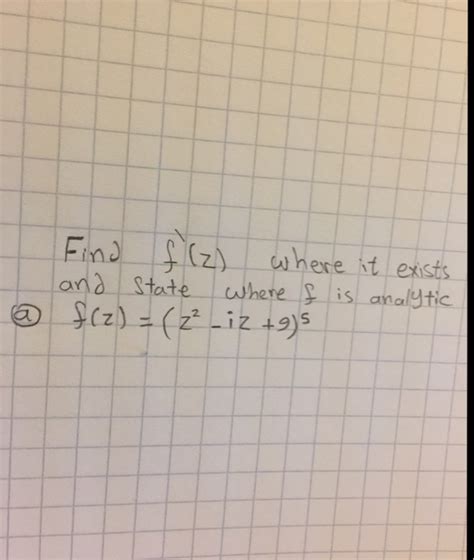 Find f`(z) where it exists
and state where f is analytic
ⓐ f(z) = (z² - iz + 9)⁵